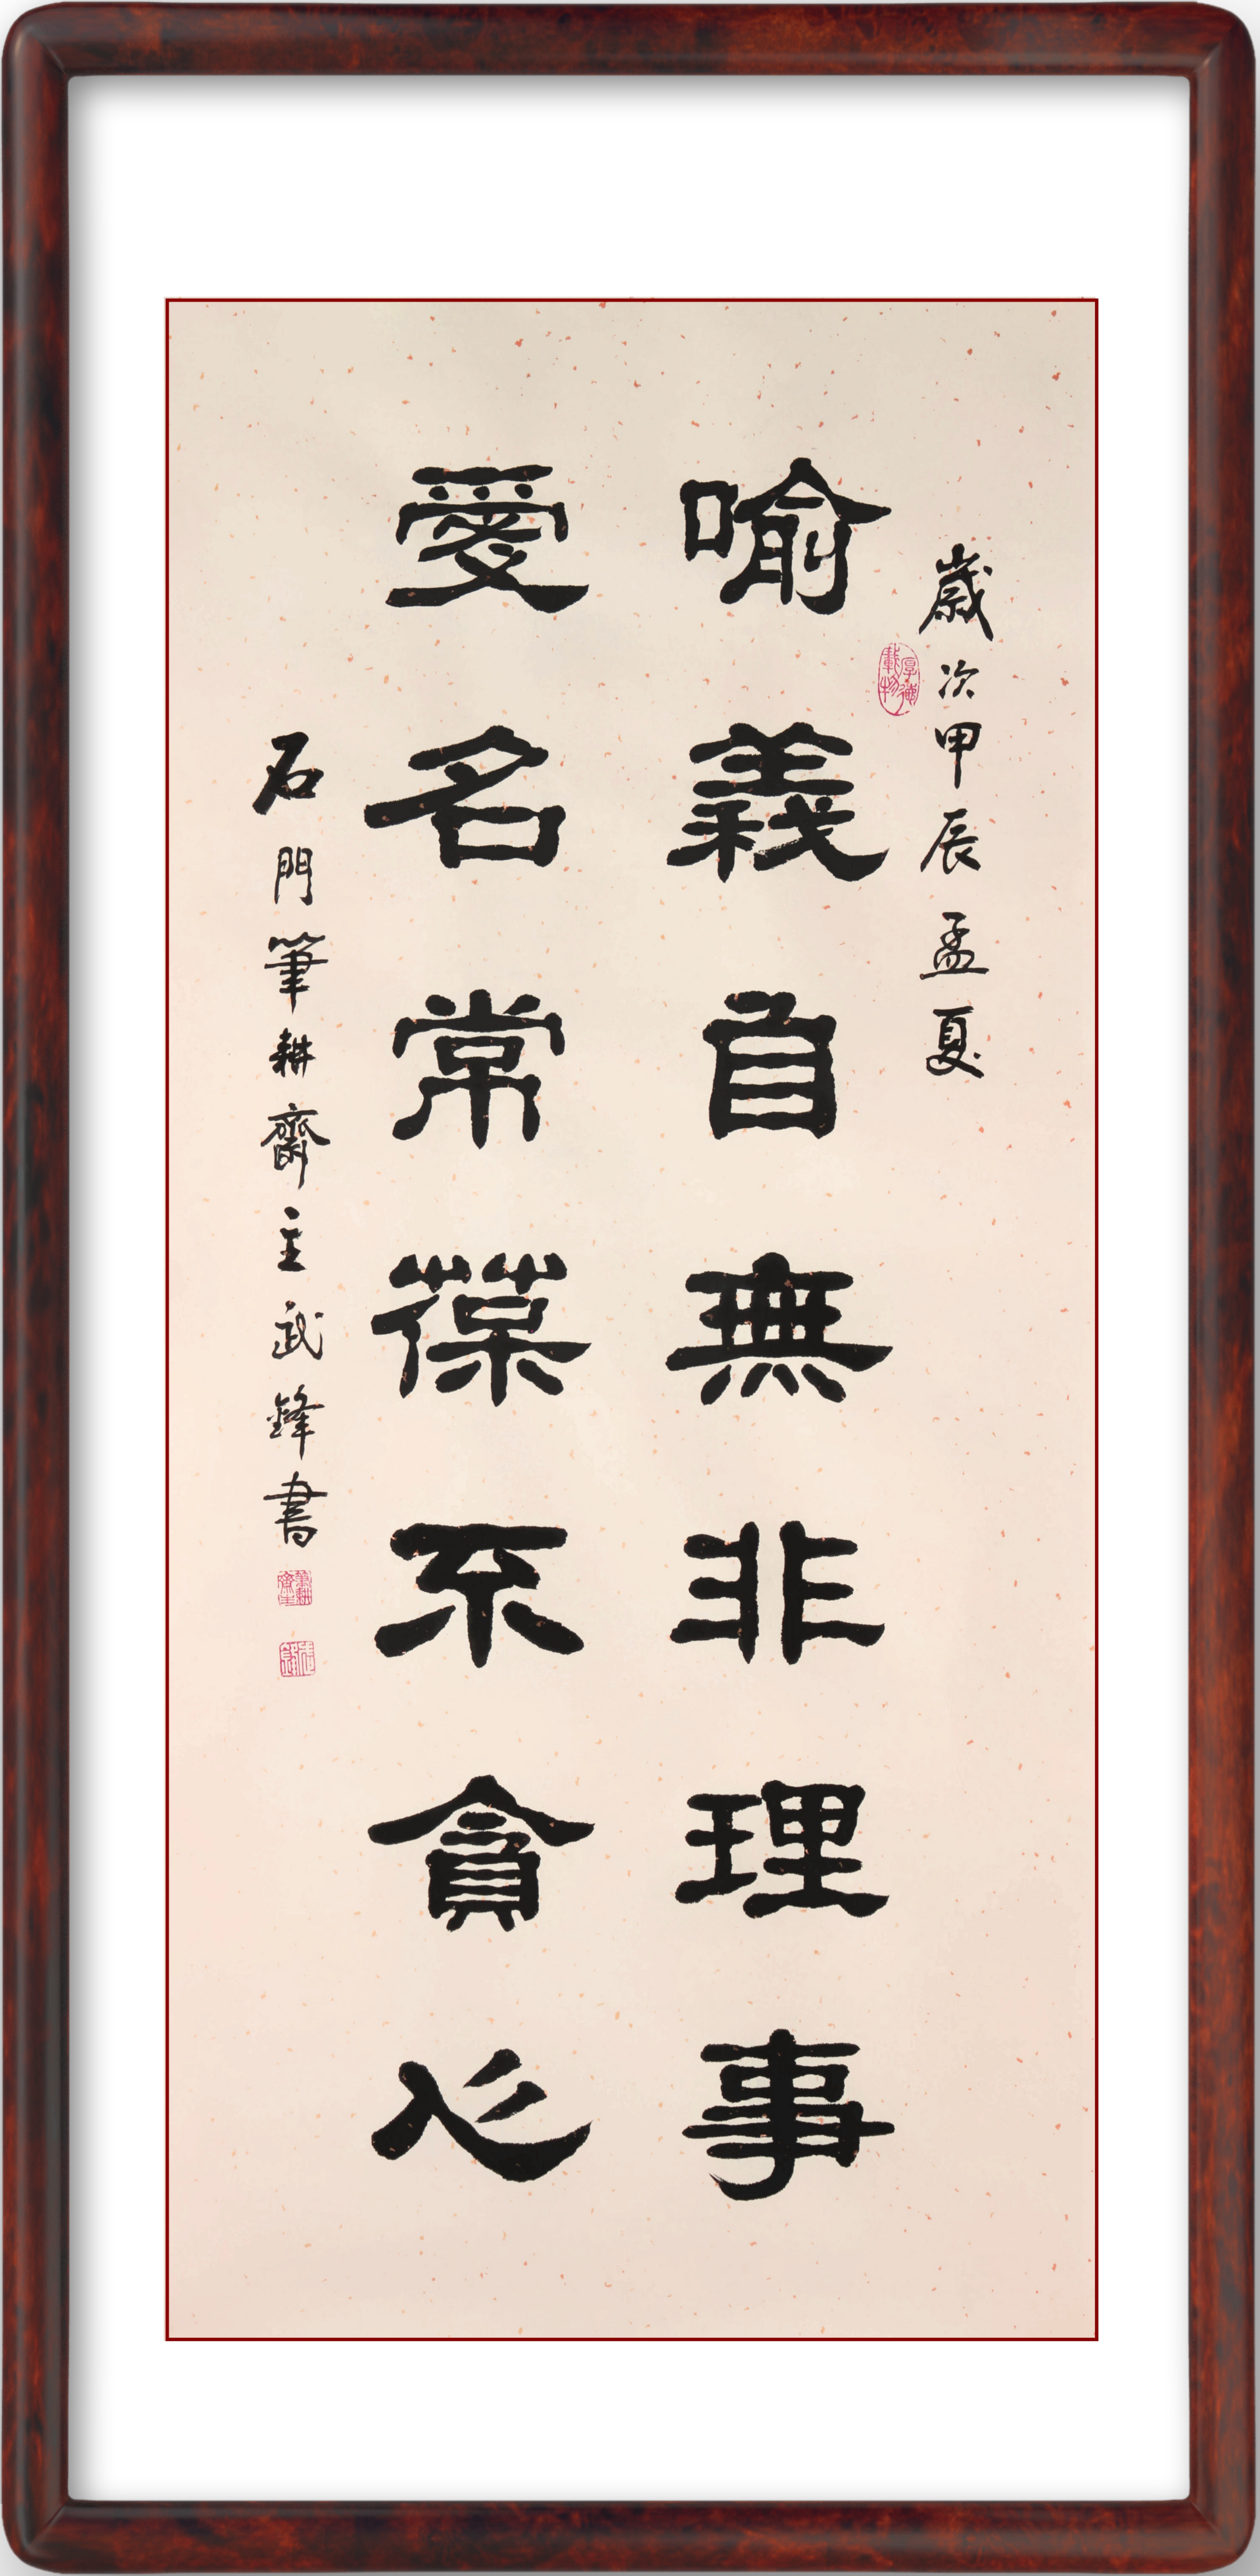 歲次甲辰孟夏
厚德載物
喻義自無非理事
愛名常葆不貪心
石門筆耕齋主武鋒書